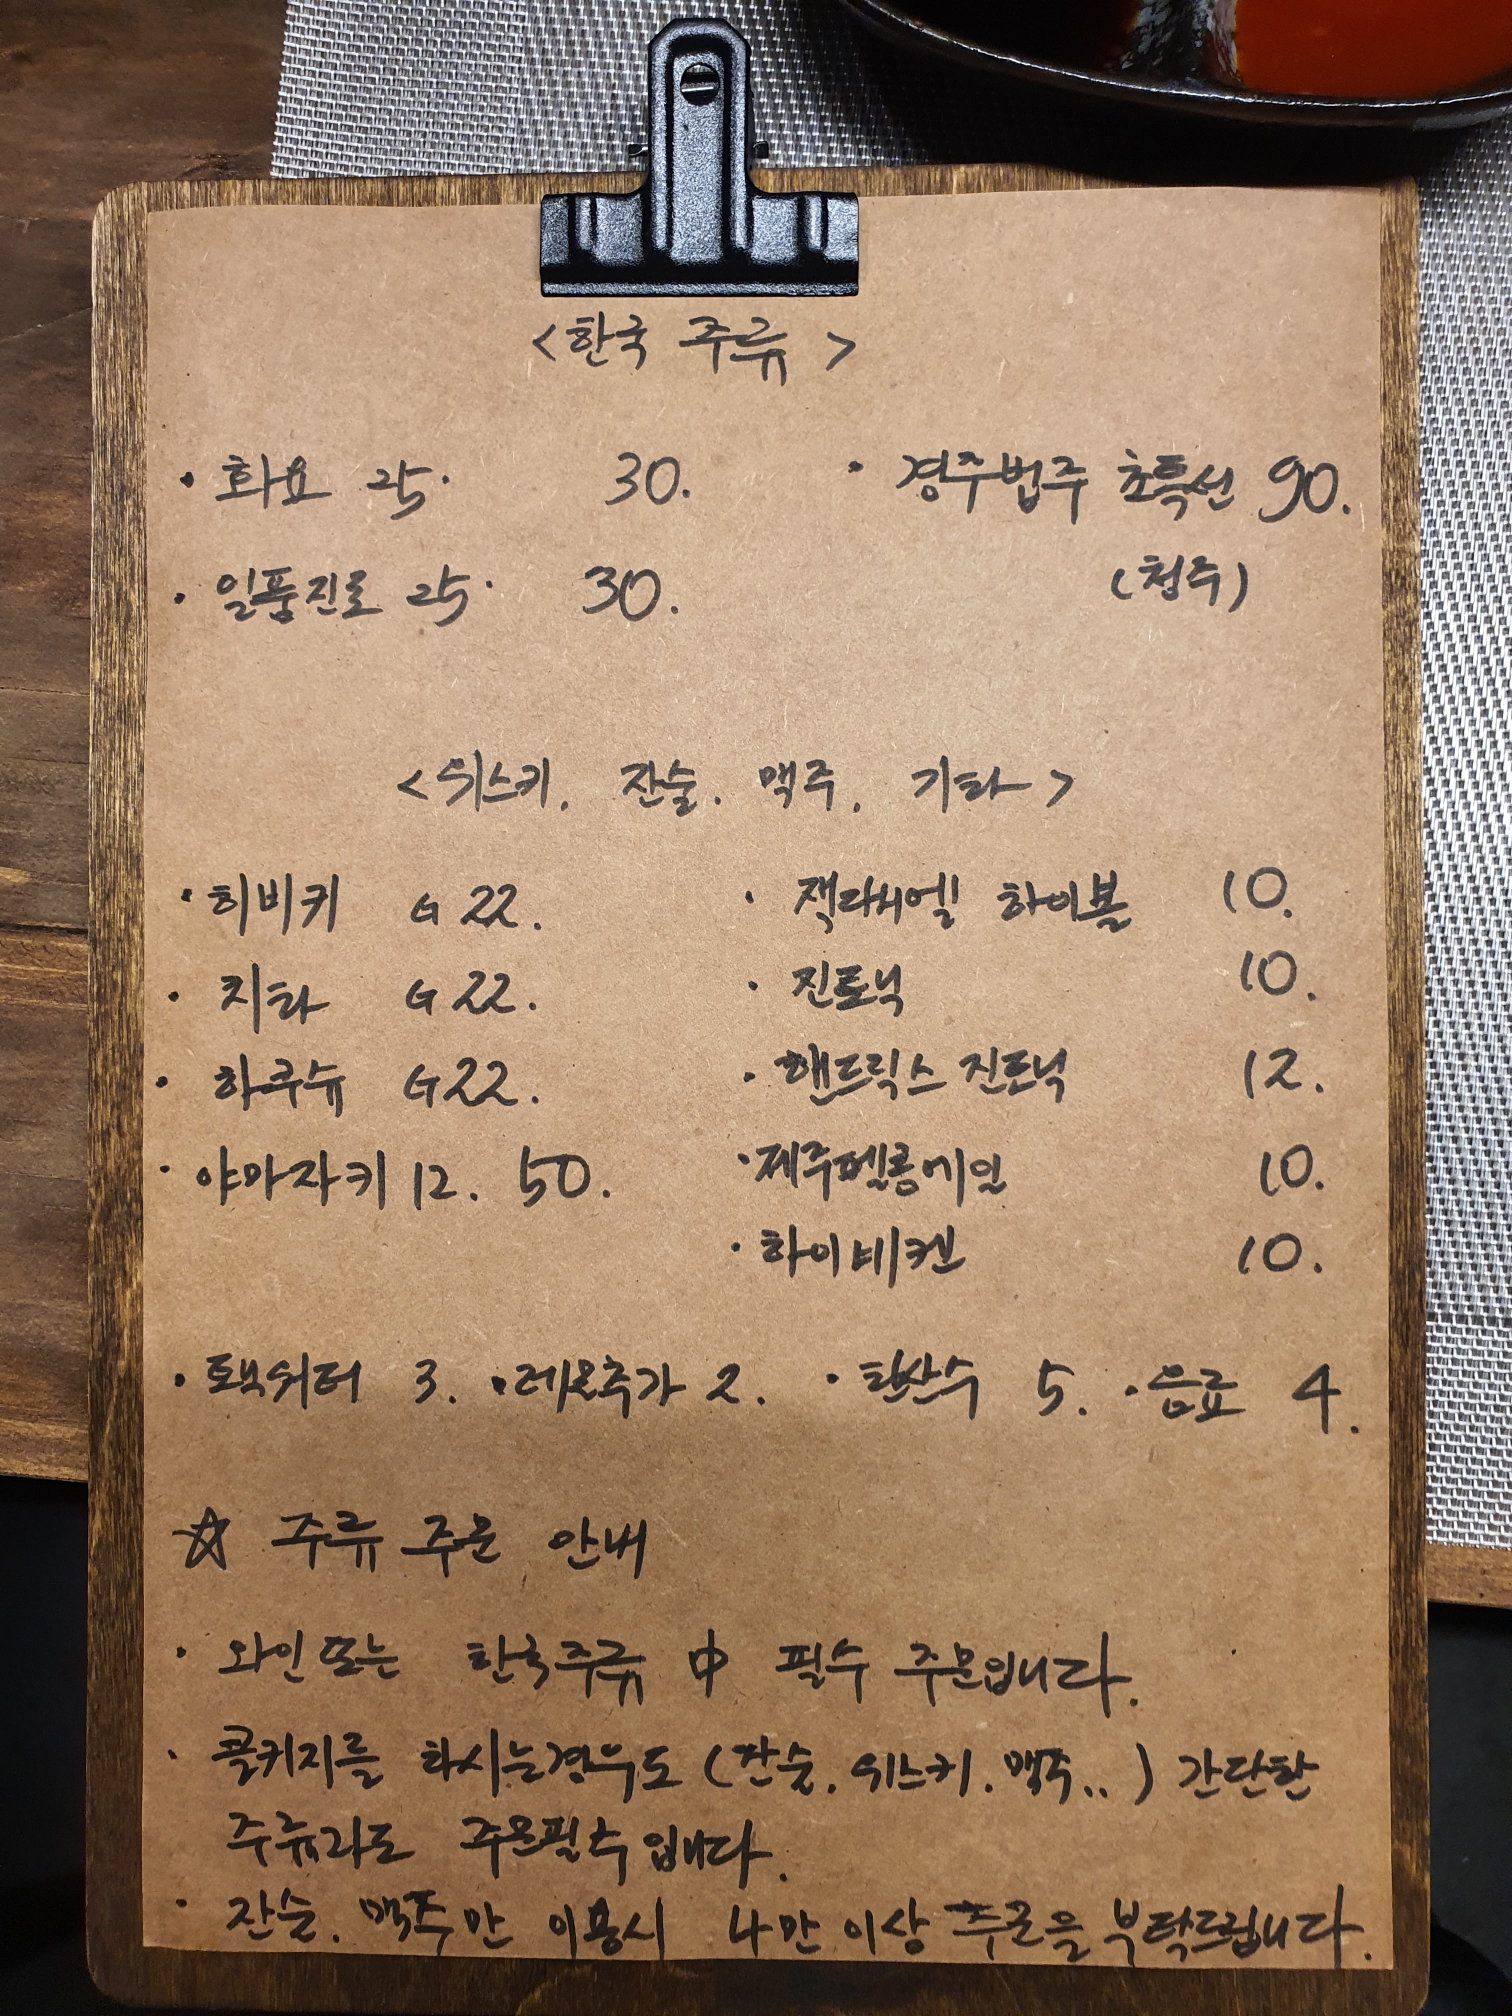 <한국 주류>
· 화요 25. 30. · 경주법주 초특선 90.
· 일품진로 25. 30. (청주)
<위스키. 잔술. 맥주. 기타>
· 히비키 G 22. · 잭다니엘 하이볼 10.
· 치타 G 22. · 진토닉 10.
· 하쿠슈 G 22. · 핸드릭스 진토닉 12.
· 야마자키 12. 50. · 제주펠롱에일 10.
· 하이네켄 10.
· 토닉워터 3. · 레몬추가 2. · 탄산수 5. · 음료 4.
☆ 주류 주문 안내
· 와인 또는 한국주류 中 필수 주문입니다.
· 콜키지를 하시는경우도 (잔술. 위스키. 맥주..) 간단한
주류라도 주문필수입니다.
· 잔술. 맥주만 이용시 인상 주문을 부탁드립니다.